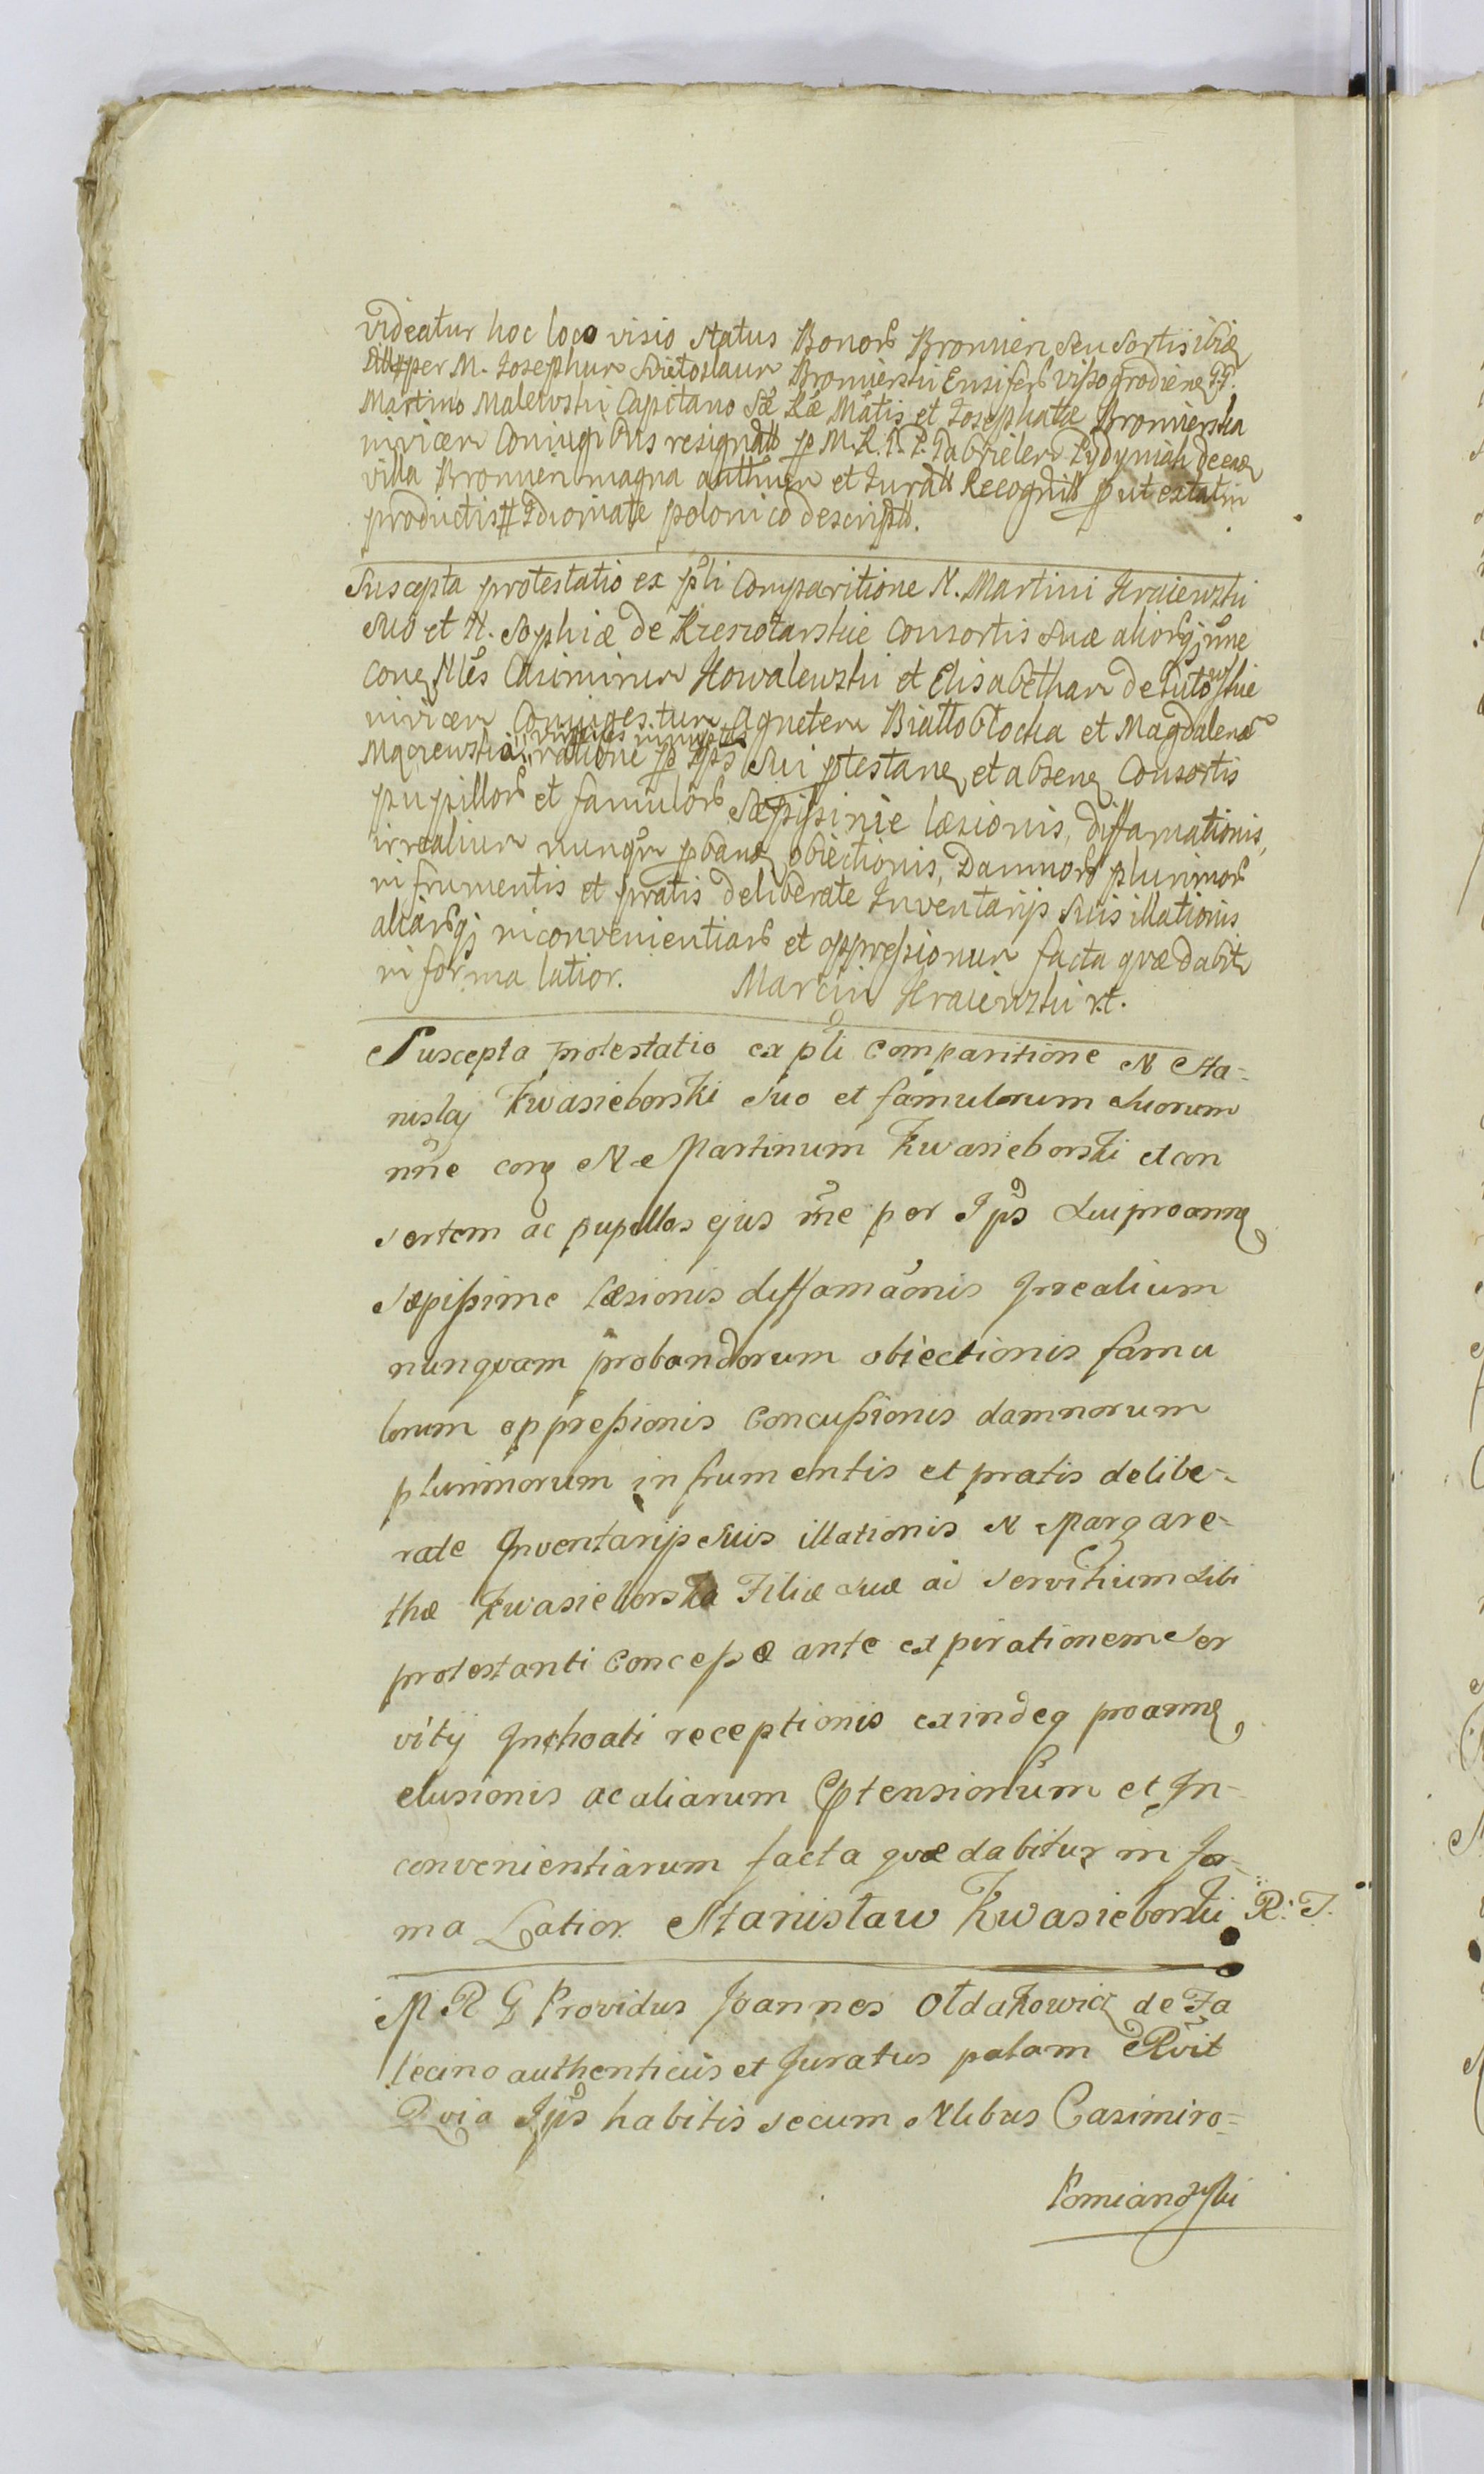 videatur hoc loco visio status Bonorũ Bromierz seu sortis ibid
per M. Josephum Swiętosławr Bromierski Ensiferũ Vissogrodiensem
Martino Malewski Capitano Sæ Ræ Mãtis et Josephatæ Bromierska
invicem Coniugibus resignat p M. R. P. Gabrielem Pydyniak de ead
villa Bromierz magna authen et Jurat Recognit put extat in
productis # Idiomate polonico descript.
Suscepta protestatio ex pli Comparitione N. Martini Kraiewski
suo et N. Sophiæ de Krzeszotarskie Consortis suæ aliorqȝ nne
cong Nles Casimirum Kowalewski et Elisabetham de Lutorskie
invicem Coniuges tum Agnetem Białłobłocka et Magdalenã
virgines
ratione p Ips sui ptestan et absen Consortis
pupillorũ et famulorũ sæpissimæ læsionis, diffamationis,
irrealium nunqm pband obiectionis, Damnorũ plurimorũ
in frumentis et pratis deliberate Inventarijs suis illationis
aliarũqȝ inconvenientiarũ et oppressionum facta quæ dabitr
in forma latior. Marcin Kraiewski rt.
Suscepta protestatio ex pli comparitione N Sta-
nislaj Kwasieborski suo et famulorum suorum
nne cong N Martinum Kwasieborski et con
sortem ac pupillos ejus rne per Ips sui proanng
sæpissime læsionis diffamãonis Irrealium
nunquam probandorum obiectionis famu
lorum oppressionis concussionis damnorum
plurimorum in frumentis et pratis delibe-
rate Inventarijs suis illationis N Margare-
thæ Kwasieborska Filiæ suæ ad servitium sibi
protestanti concessæ ante expirationem ser
vitij Inchoati receptionis exindeq proanng
elusionis ac aliarum Ptensionum et In-
convenientiarum facta quæ dabitur in for-
ma Latior. Stanisław Kwasieborski R: T.
M R G Providus Joannes Ołdakowicz de Fa
lęcino authenticus et Juratus palam Rvit
Quia Ips habitis secum Nlibus Casimiro-
Pomianowski